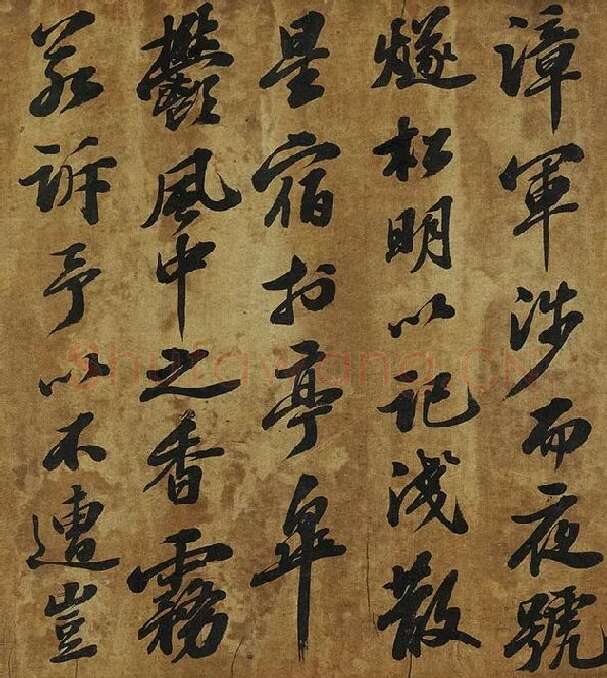 漳軍涉而夜號
燧松明以記淺散
星宿扵亭皋
鬱風中之香霧
若訴予以不遭豈